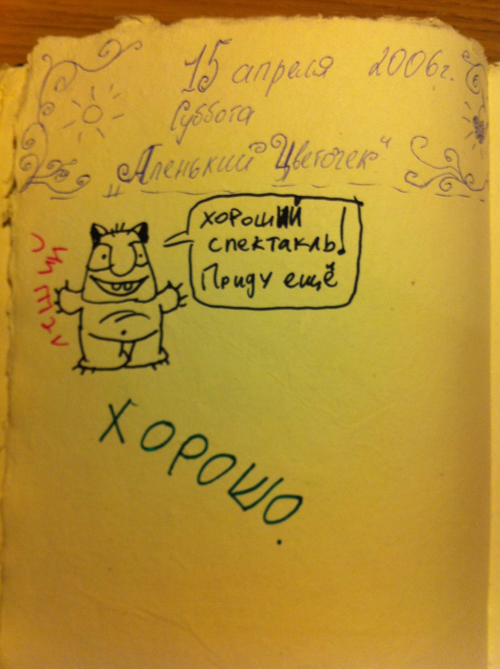 15 апреля 2006г.
Суббота
„Аленький Цветочек“
ХОРОШИЙ
СПЕКТАКЛЬ!
Приду ещё
Леший
ХОРОШО.